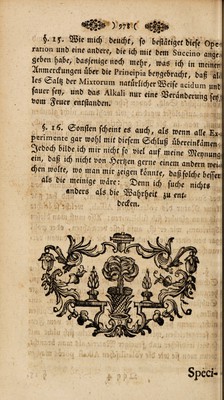 ) 572 (
§. 15. Wie mich deucht, so bestätiget diese Ope-
ration und eine andere, die ich mit dem Succino ange-
geben habe, dasjenige noch mehr, was ich in meinen
Anmerckungen über die Principia beygebracht, daß al-
les Saltz der Mixtorum natürlicher Weise acidum und
sauer sey, und das Alkali nur eine Veränderung sey,
vom Feuer entstanden.
§. 16. Sonsten scheint es auch, als wenn alle Ex-
perimente gar wohl mit diesem Schluß übereinkämen.
Jedoch bilde ich mir nicht so viel auf meine Meynung
ein, daß ich nicht von Hertzen gerne einem andern wei-
chen wolte, wo man mir zeigen könnte, daß solche besser
als die meinige wäre: Denn ich suche nichts
anders als die Wahrheit zu ent-
decken.
Speci-